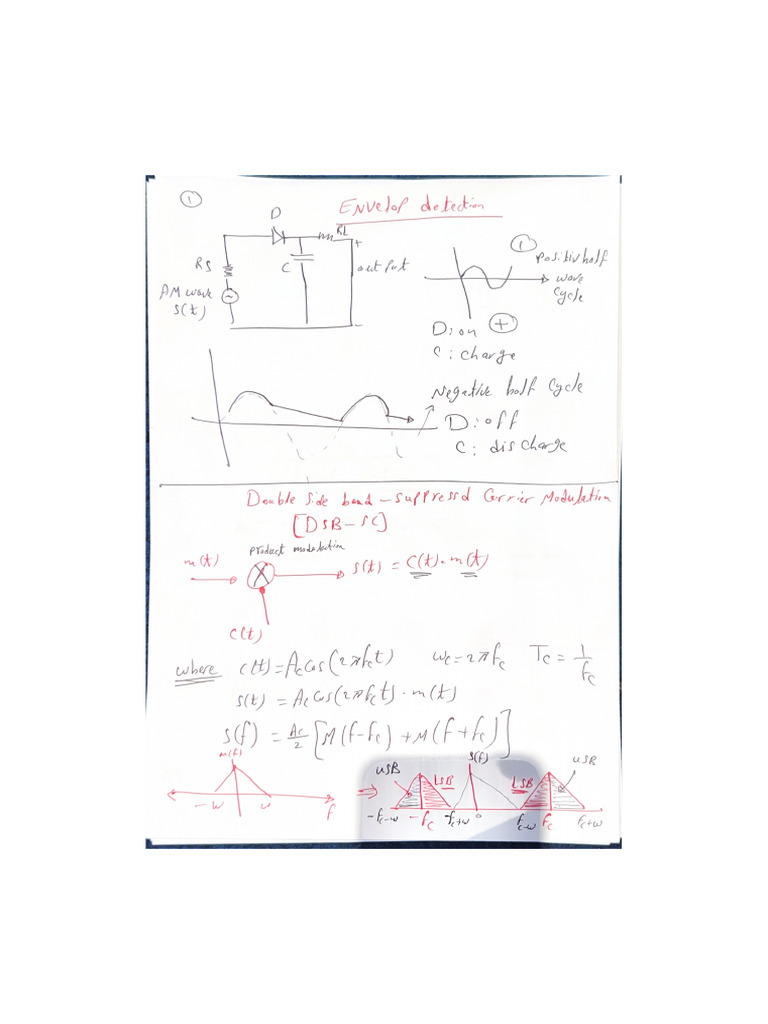 ①
Envelop detection
D
RL
+
Rs
C
output
AM wave
s(t)
-
①
positiv half
wave
cycle
D: on +
C: charge
Negative half cycle
D: off
C: discharge
Double side band - suppressd Carrier Modulation
[DSB-SC]
product modulation
m(t)
s(t) = C(t) · m(t)
C(t)
where C(t) = Ac Cos(2πfct) wc = 2πfc Tc = 1/fc
s(t) = Ac Cos(2πfct) · m(t)
S(f) = Ac/2 [M(f-fc) + M(f+fc)]
M(f)
-w w f
⇒
USB LSB S(f) LSB USB
-fc-w -fc -fc+w 0 fc-w fc fc+w